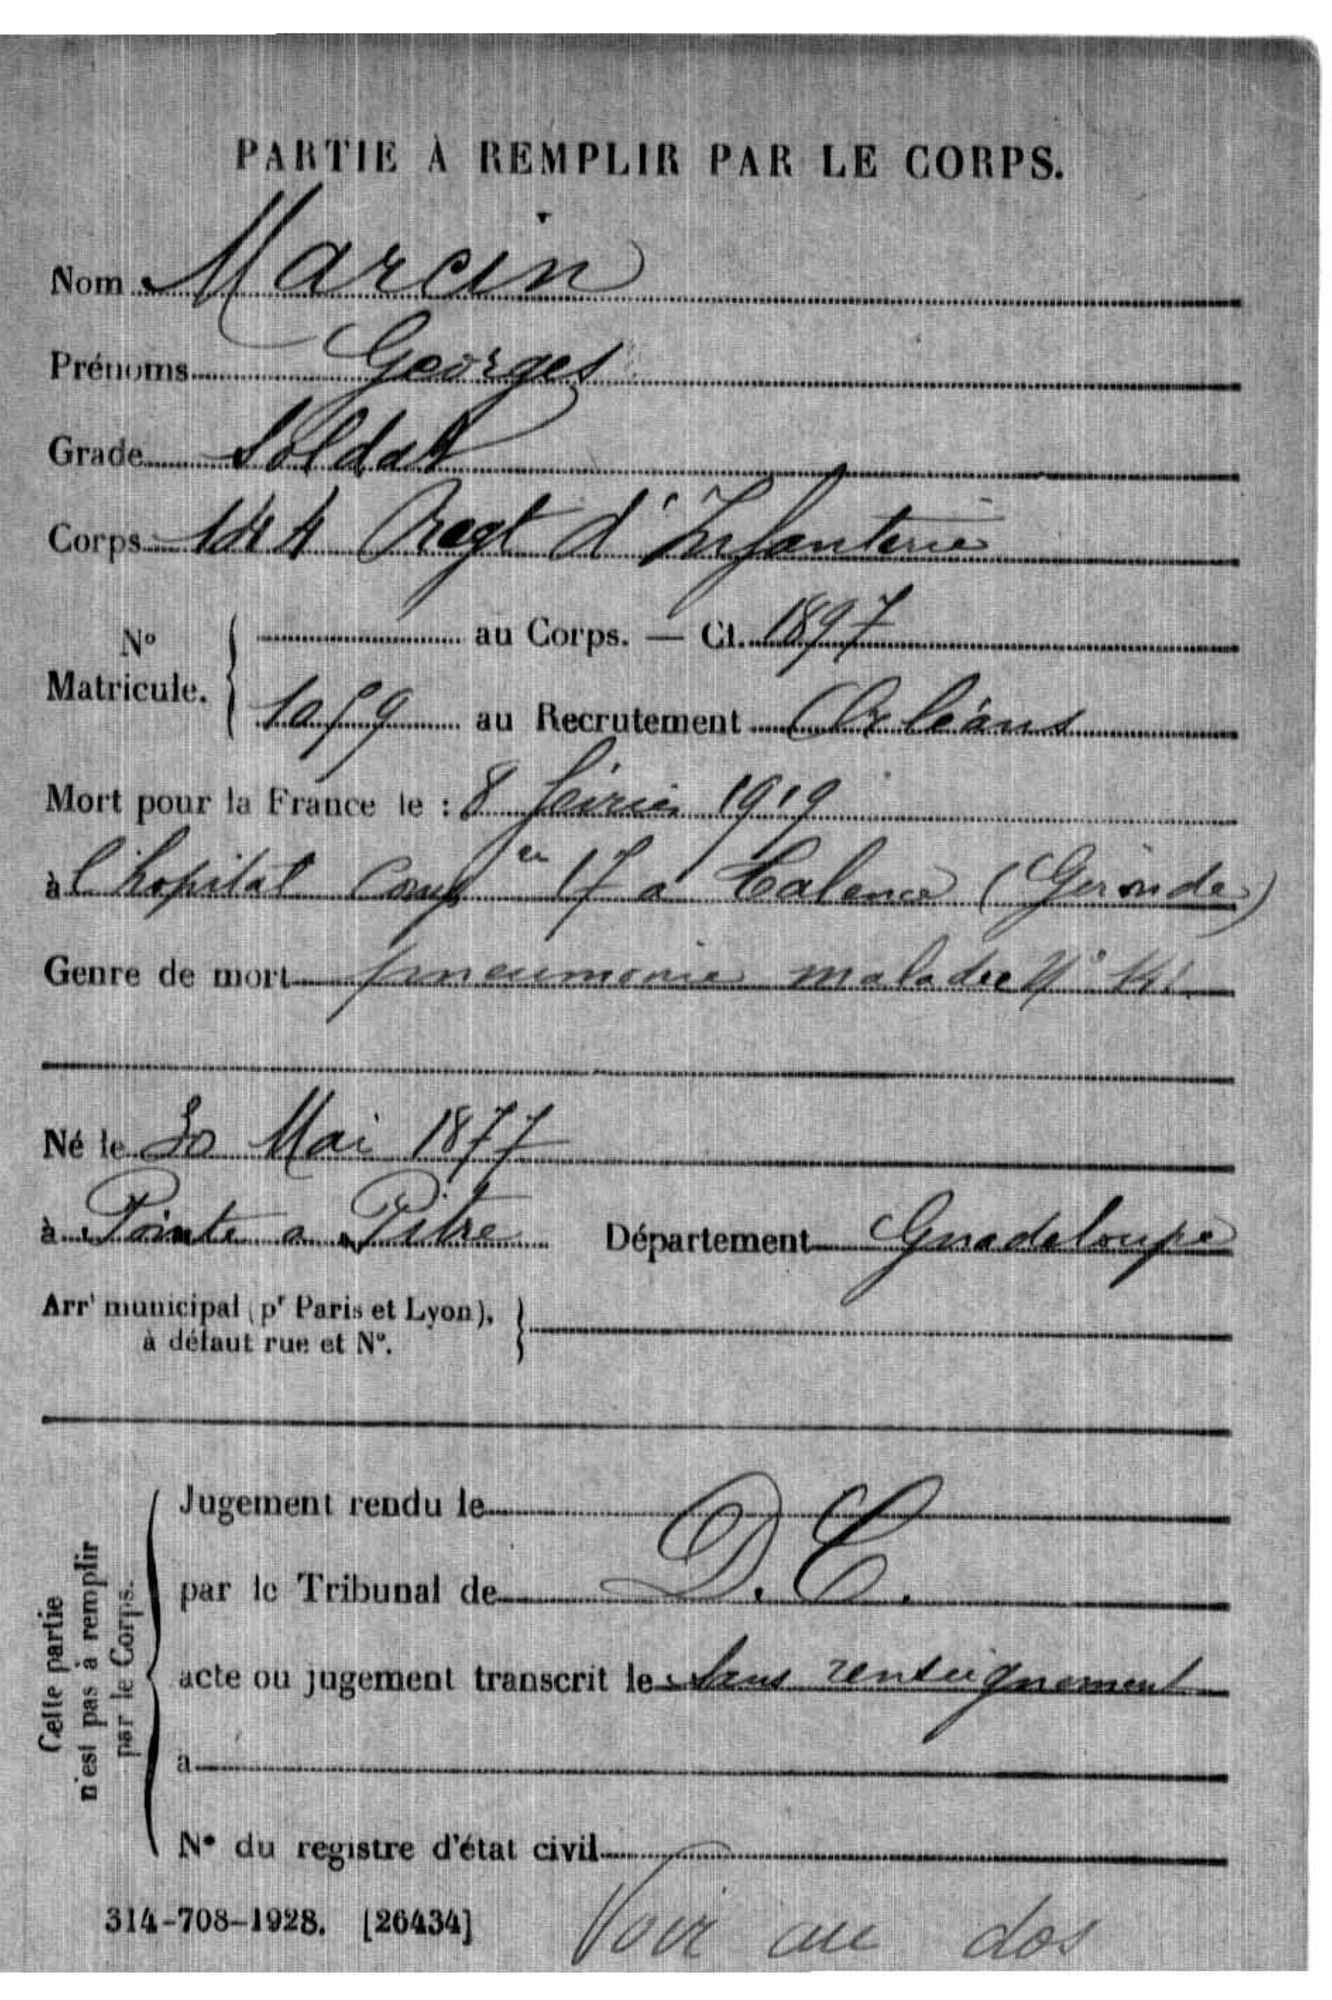 PARTIE À REMPLIR PAR LE CORPS.
Nom Marcin
Prénoms Georges
Grade Soldat
Corps 144 Regt d'Infanterie
N° Matricule. { au Corps. — Cl. 1897
1059 au Recrutement Orléans
Mort pour la France le : 8 février 1919
à l'hopital Compre 17 a Talence (Gironde)
Genre de mort pneumonie maladie
Né le 30 Mai 1877
à Pointe a Pitre Département Guadeloupe
Arrt municipal (pr Paris et Lyon), à défaut rue et N°. }
Cette partie n'est pas à remplir par le Corps.
Jugement rendu le
par le Tribunal de D.C.
acte ou jugement transcrit le Sans renseignement
à
N° du registre d'état civil
314-708-1928. [26434] Voir au dos